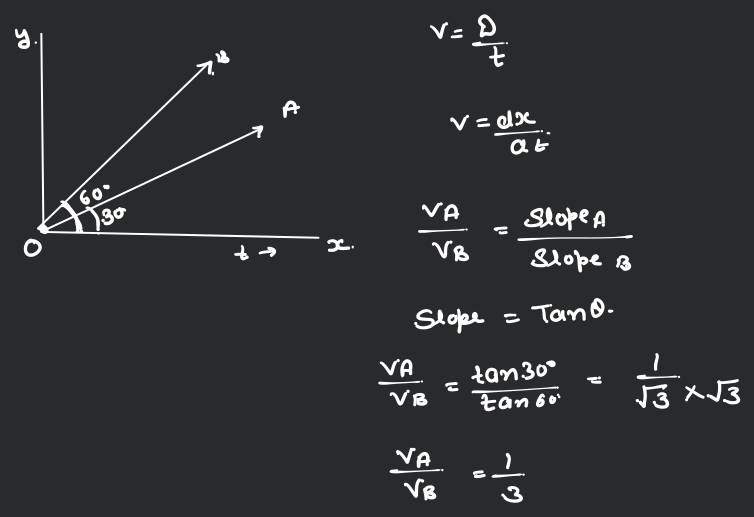 y.
B
A
60°
30
O
t → x.
V = D/t
V = dx/dt
VA/VB = Slope A/Slope B
Slope = Tanθ.
VA/VB = tan30°/tan60° = 1/√3 × √3
VA/VB = 1/3